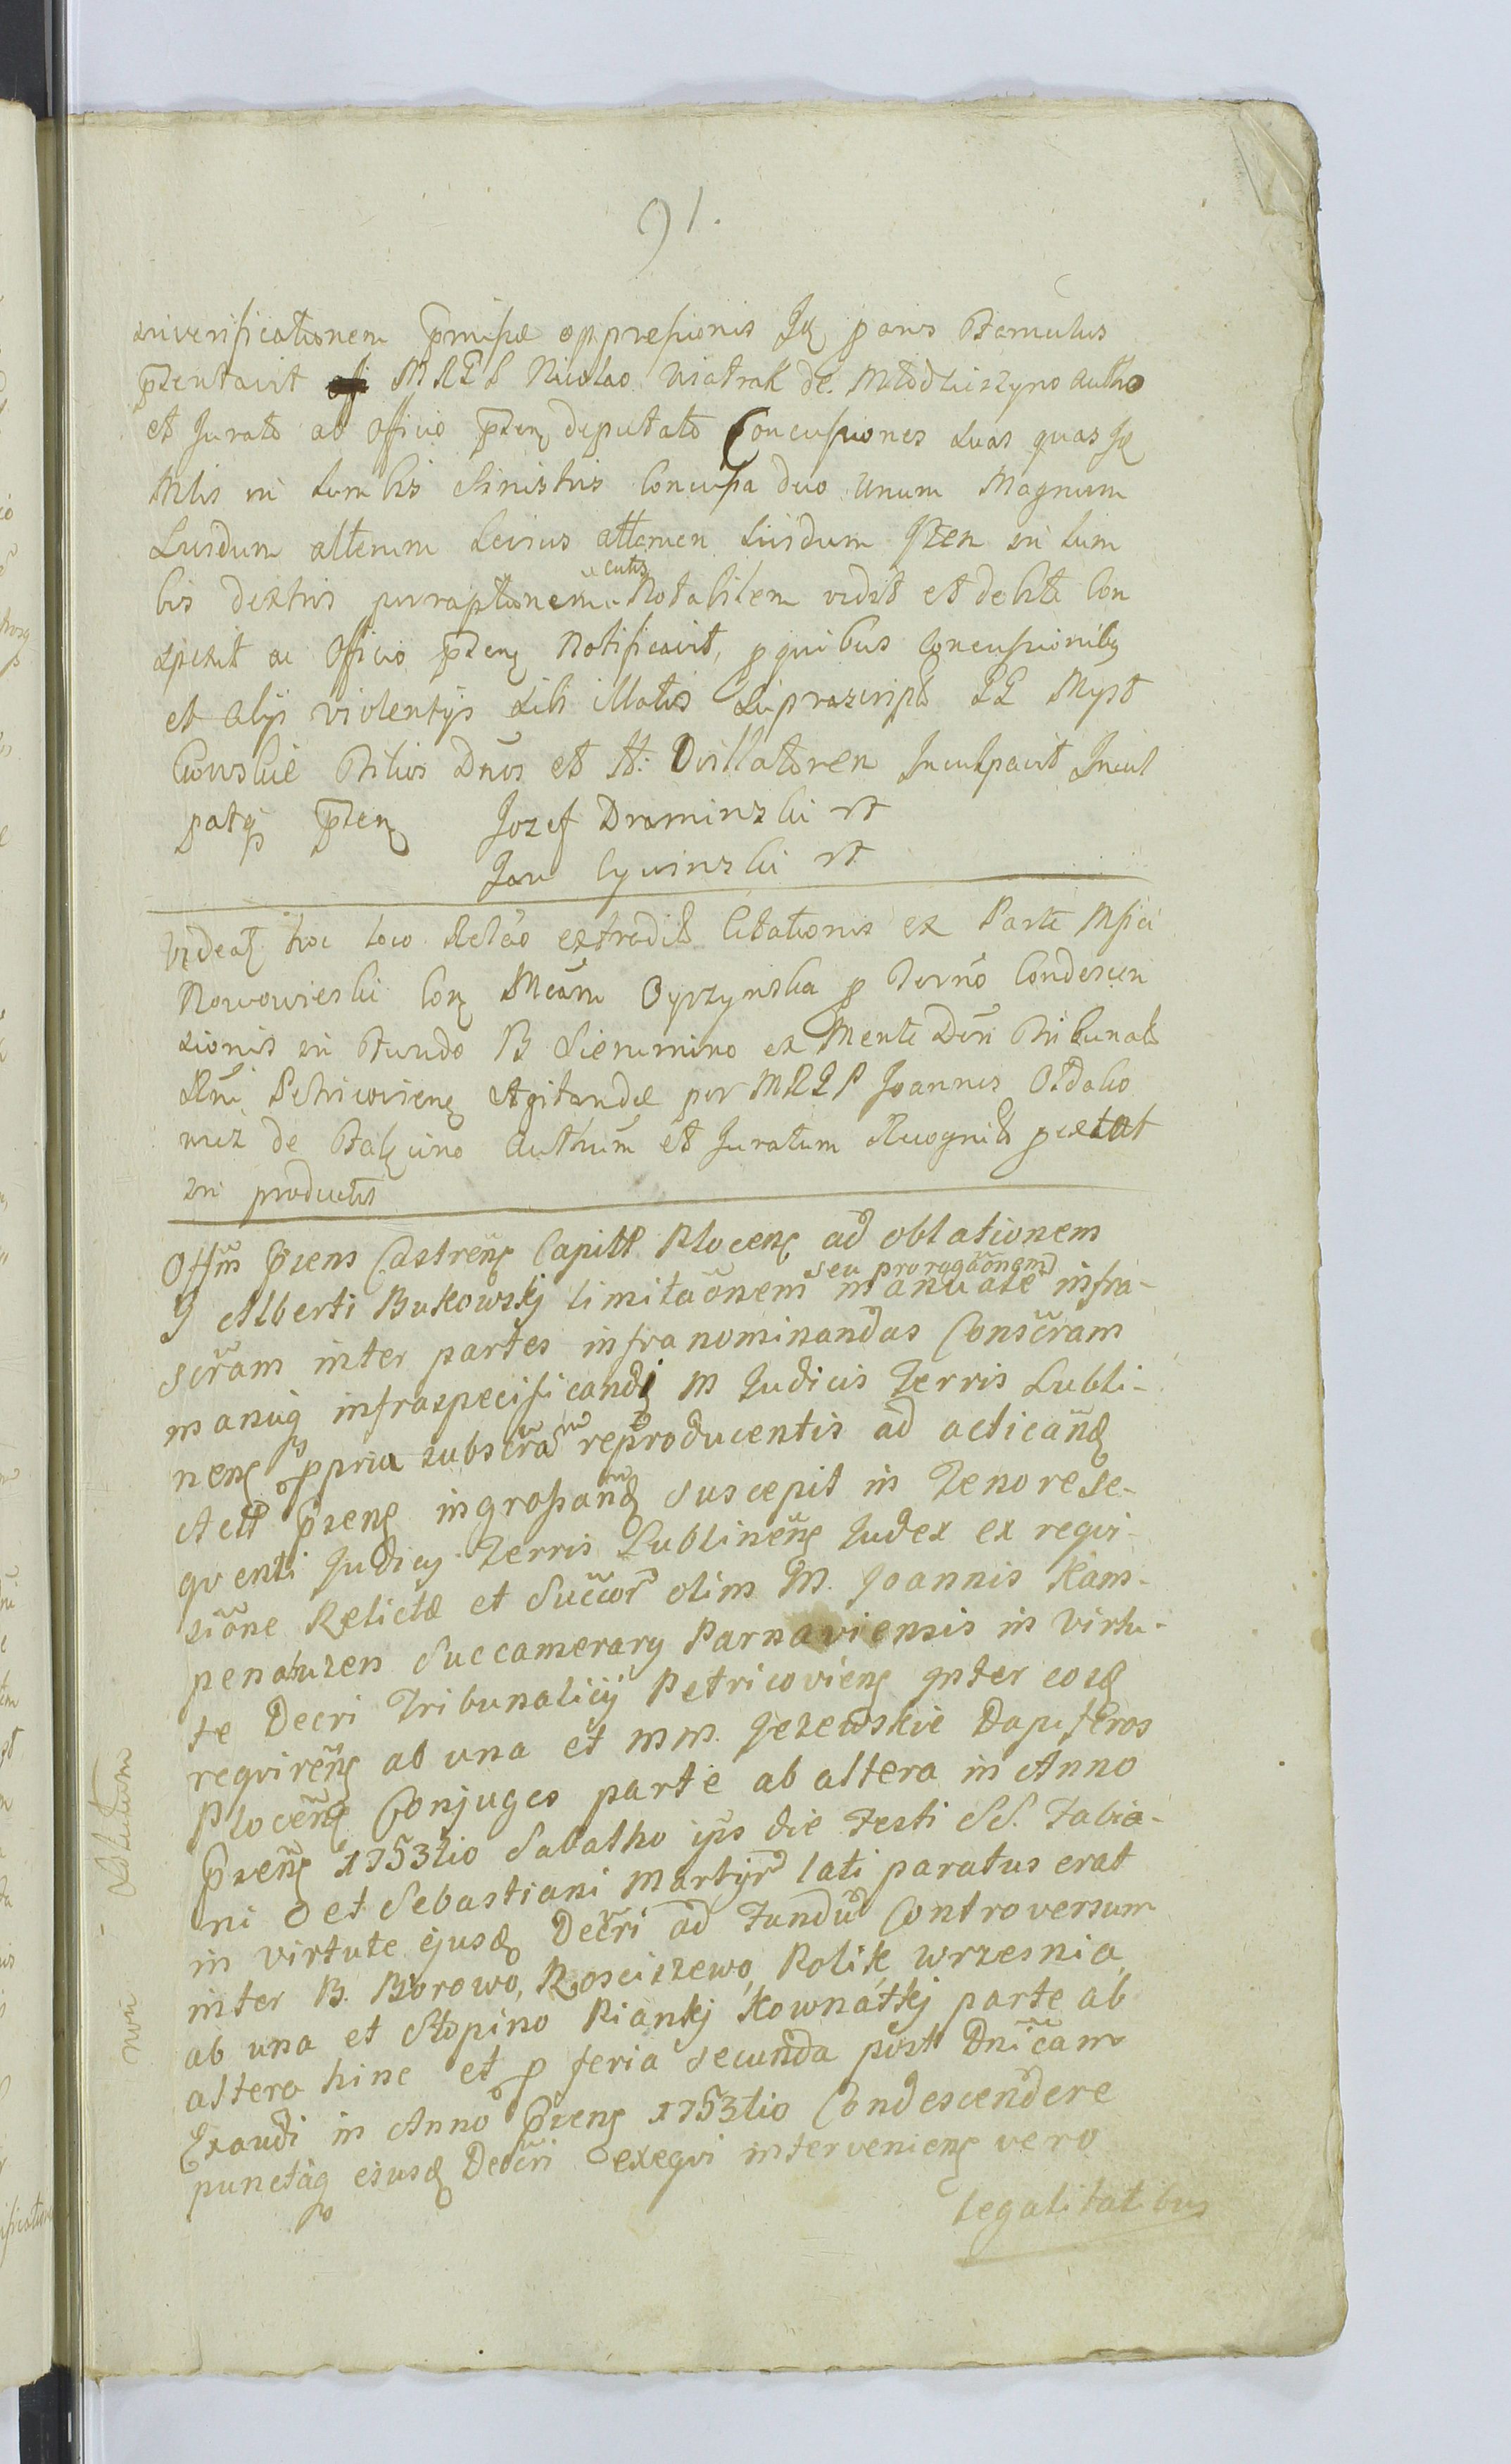 91.
inverificationem p̄missæ oppressionis Jdꝫ parvs Famulus
p̄zentavit MRLP Nicolao Wiatrak de Młodkiszyno Autho
et Jurato ab Officio p̄zenꝫ deputato Concussiones duas quas Jdꝫ
Mlis in lumbis sinistris Concussa duo unum Magnum
Lividum alterum Levius attamen lividum Jtem in lum
bis dextris perraptionem cutis Notabilem vidit et debite Con
spexit ac Officio p̄zenꝫ Notificavit, p quibus Concussionibꝫ
et alijs violentijs sibi illatis
Dn̄os et Inculpavit Incul
patqꝫ p̄zenꝫ Jozef Draminski
Jan Cywinski
Videatꝫ hoc loco Relāo extradit Citationis ex Parte Mfici
Nowowieski Con p Term̄o Condescen
sionis in Fundo B Sierumino ex Mente Decri Tribunal
Rni Petricoviensꝫ Agitandæ per MRLP Joannes
de Authum et Juratum Recognit pextat
in productis
Offm p̄zens Castren̄ Capitt Plocenꝫ ad oblationem
G Alberti Bukowskj limitāonem seu prorogāonem manuale infra-
scr̄am inter partes infranominandas Conscr̄am
manuqꝫ infraspecificandj M Judicis Terris Lubli-
nenꝫ ppria subscr̄am reproducentis ad acticanđ
Actt p̄zenꝫ ingrossanđ suscepit in Tenore se-
qventi Judicij Terris Lublinen̄ Judex ex reqvi-
siōne Relictæ et Succor̄ olim M. Joannis Kam-
penahuzen Succamerary Parnaviensis in virtu-
te Decri Tribunalicij Petricovienꝫ Inter eosđ
reqviren̄ ab una et M M. Jezewskie Dapiferos
Plocen̄ Conjuges parte ab altera in Anno
p̄zen̄ 1753tio Sabatho ip̄s die Festi SS. Fabia-
ni et Sebastiani Martyr̄ lati paratus erat
in virtute ejusđ Decri ad Fundū Controversum
inter B. Borowo, Rosciszewo, Polik, Wrzesnia,
ab una et Stopino Piankj Kownátkj parte ab
altera hinc et p feria secunda post Dn̄icam
Exaudi in Anno p̄zenꝫ 1753tio Condescendere
punctaqꝫ ejusđ Decri exeqvi intervenienꝫ vero
legalitatibus
non - Statutum